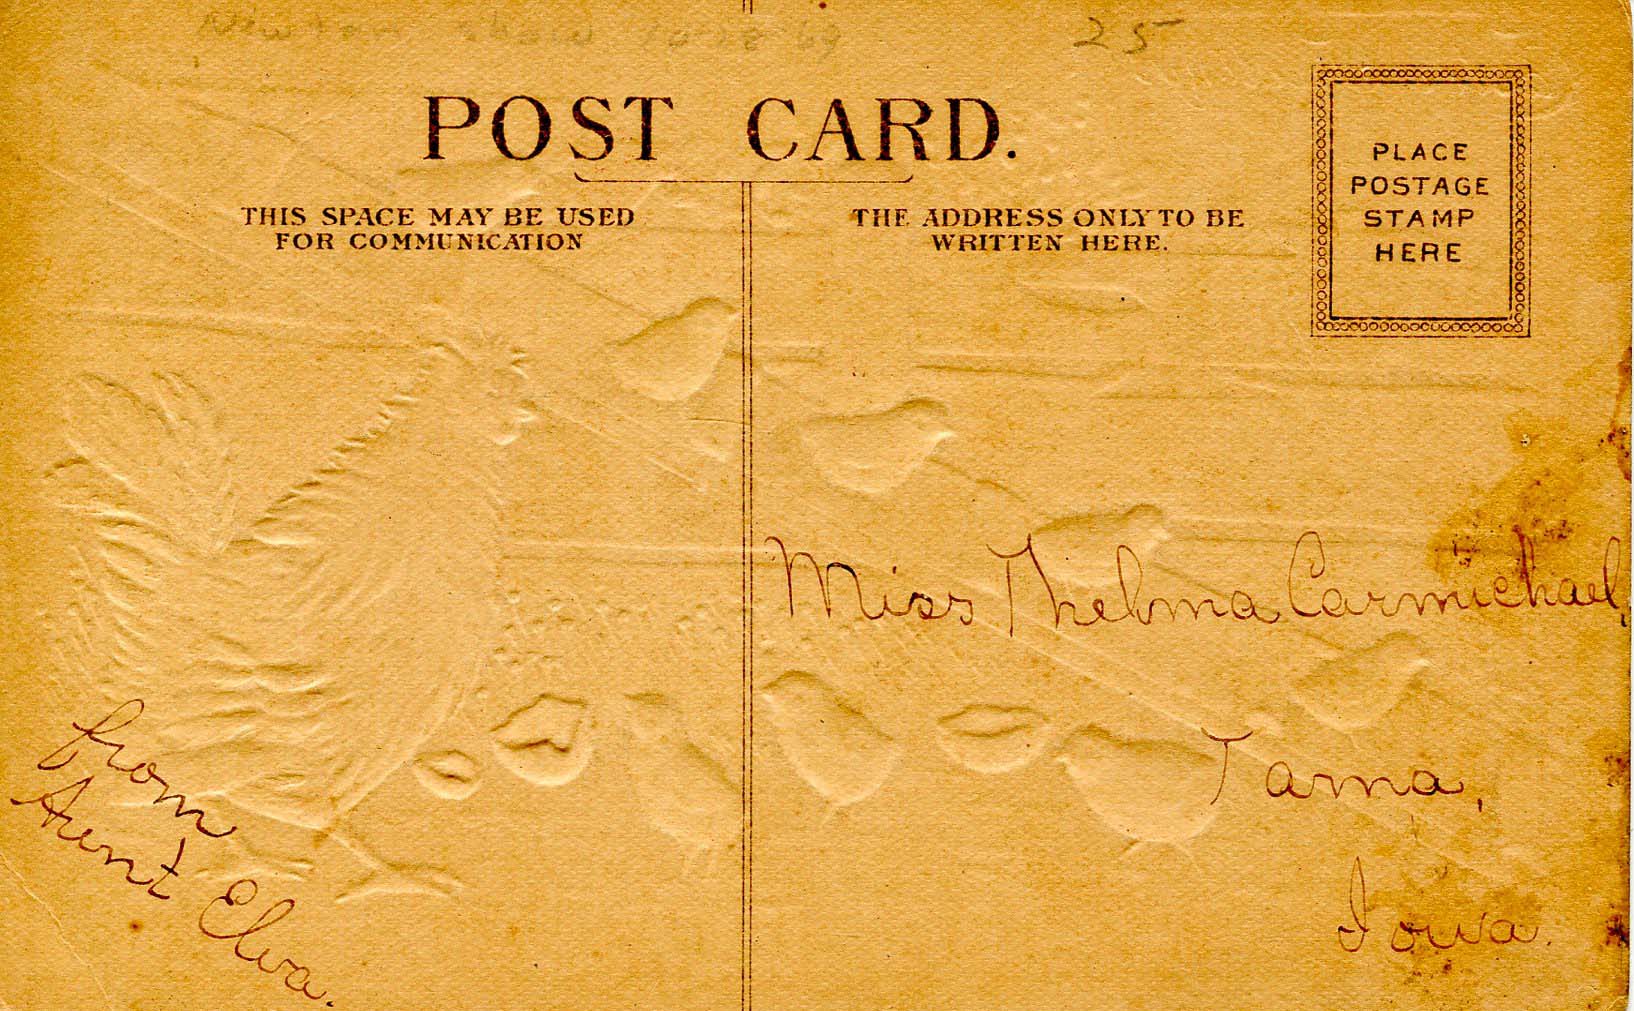 Newton show 10-28-69
25
POST CARD.
THIS SPACE MAY BE USED
FOR COMMUNICATION
THE ADDRESS ONLY TO BE
WRITTEN HERE.
PLACE
POSTAGE
STAMP
HERE
Miss Thelma Carmichael,
Tama,
Iowa.
from
Aunt Elva.